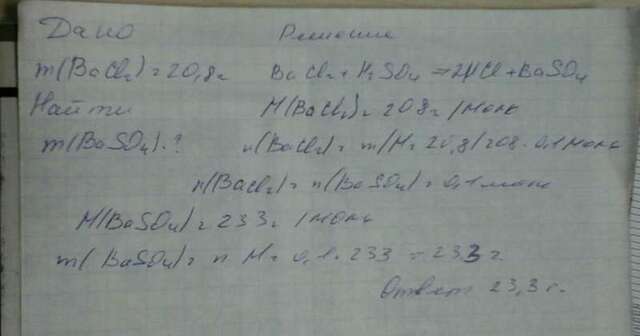 Дано Решение
m(BaCl2)=20,8г BaCl2+H2SO4=2HCl+BaSO4
Найти M(BaCl2)=208г/моль
m(BaSO4)-? n(BaCl2)=m/M=20,8/208=0,1моль
n(BaCl2)=n(BaSO4)=0,1моль
M(BaSO4)=233г/моль
m(BaSO4)=n·M=0,1·233=233г.
Ответ 23,3г.